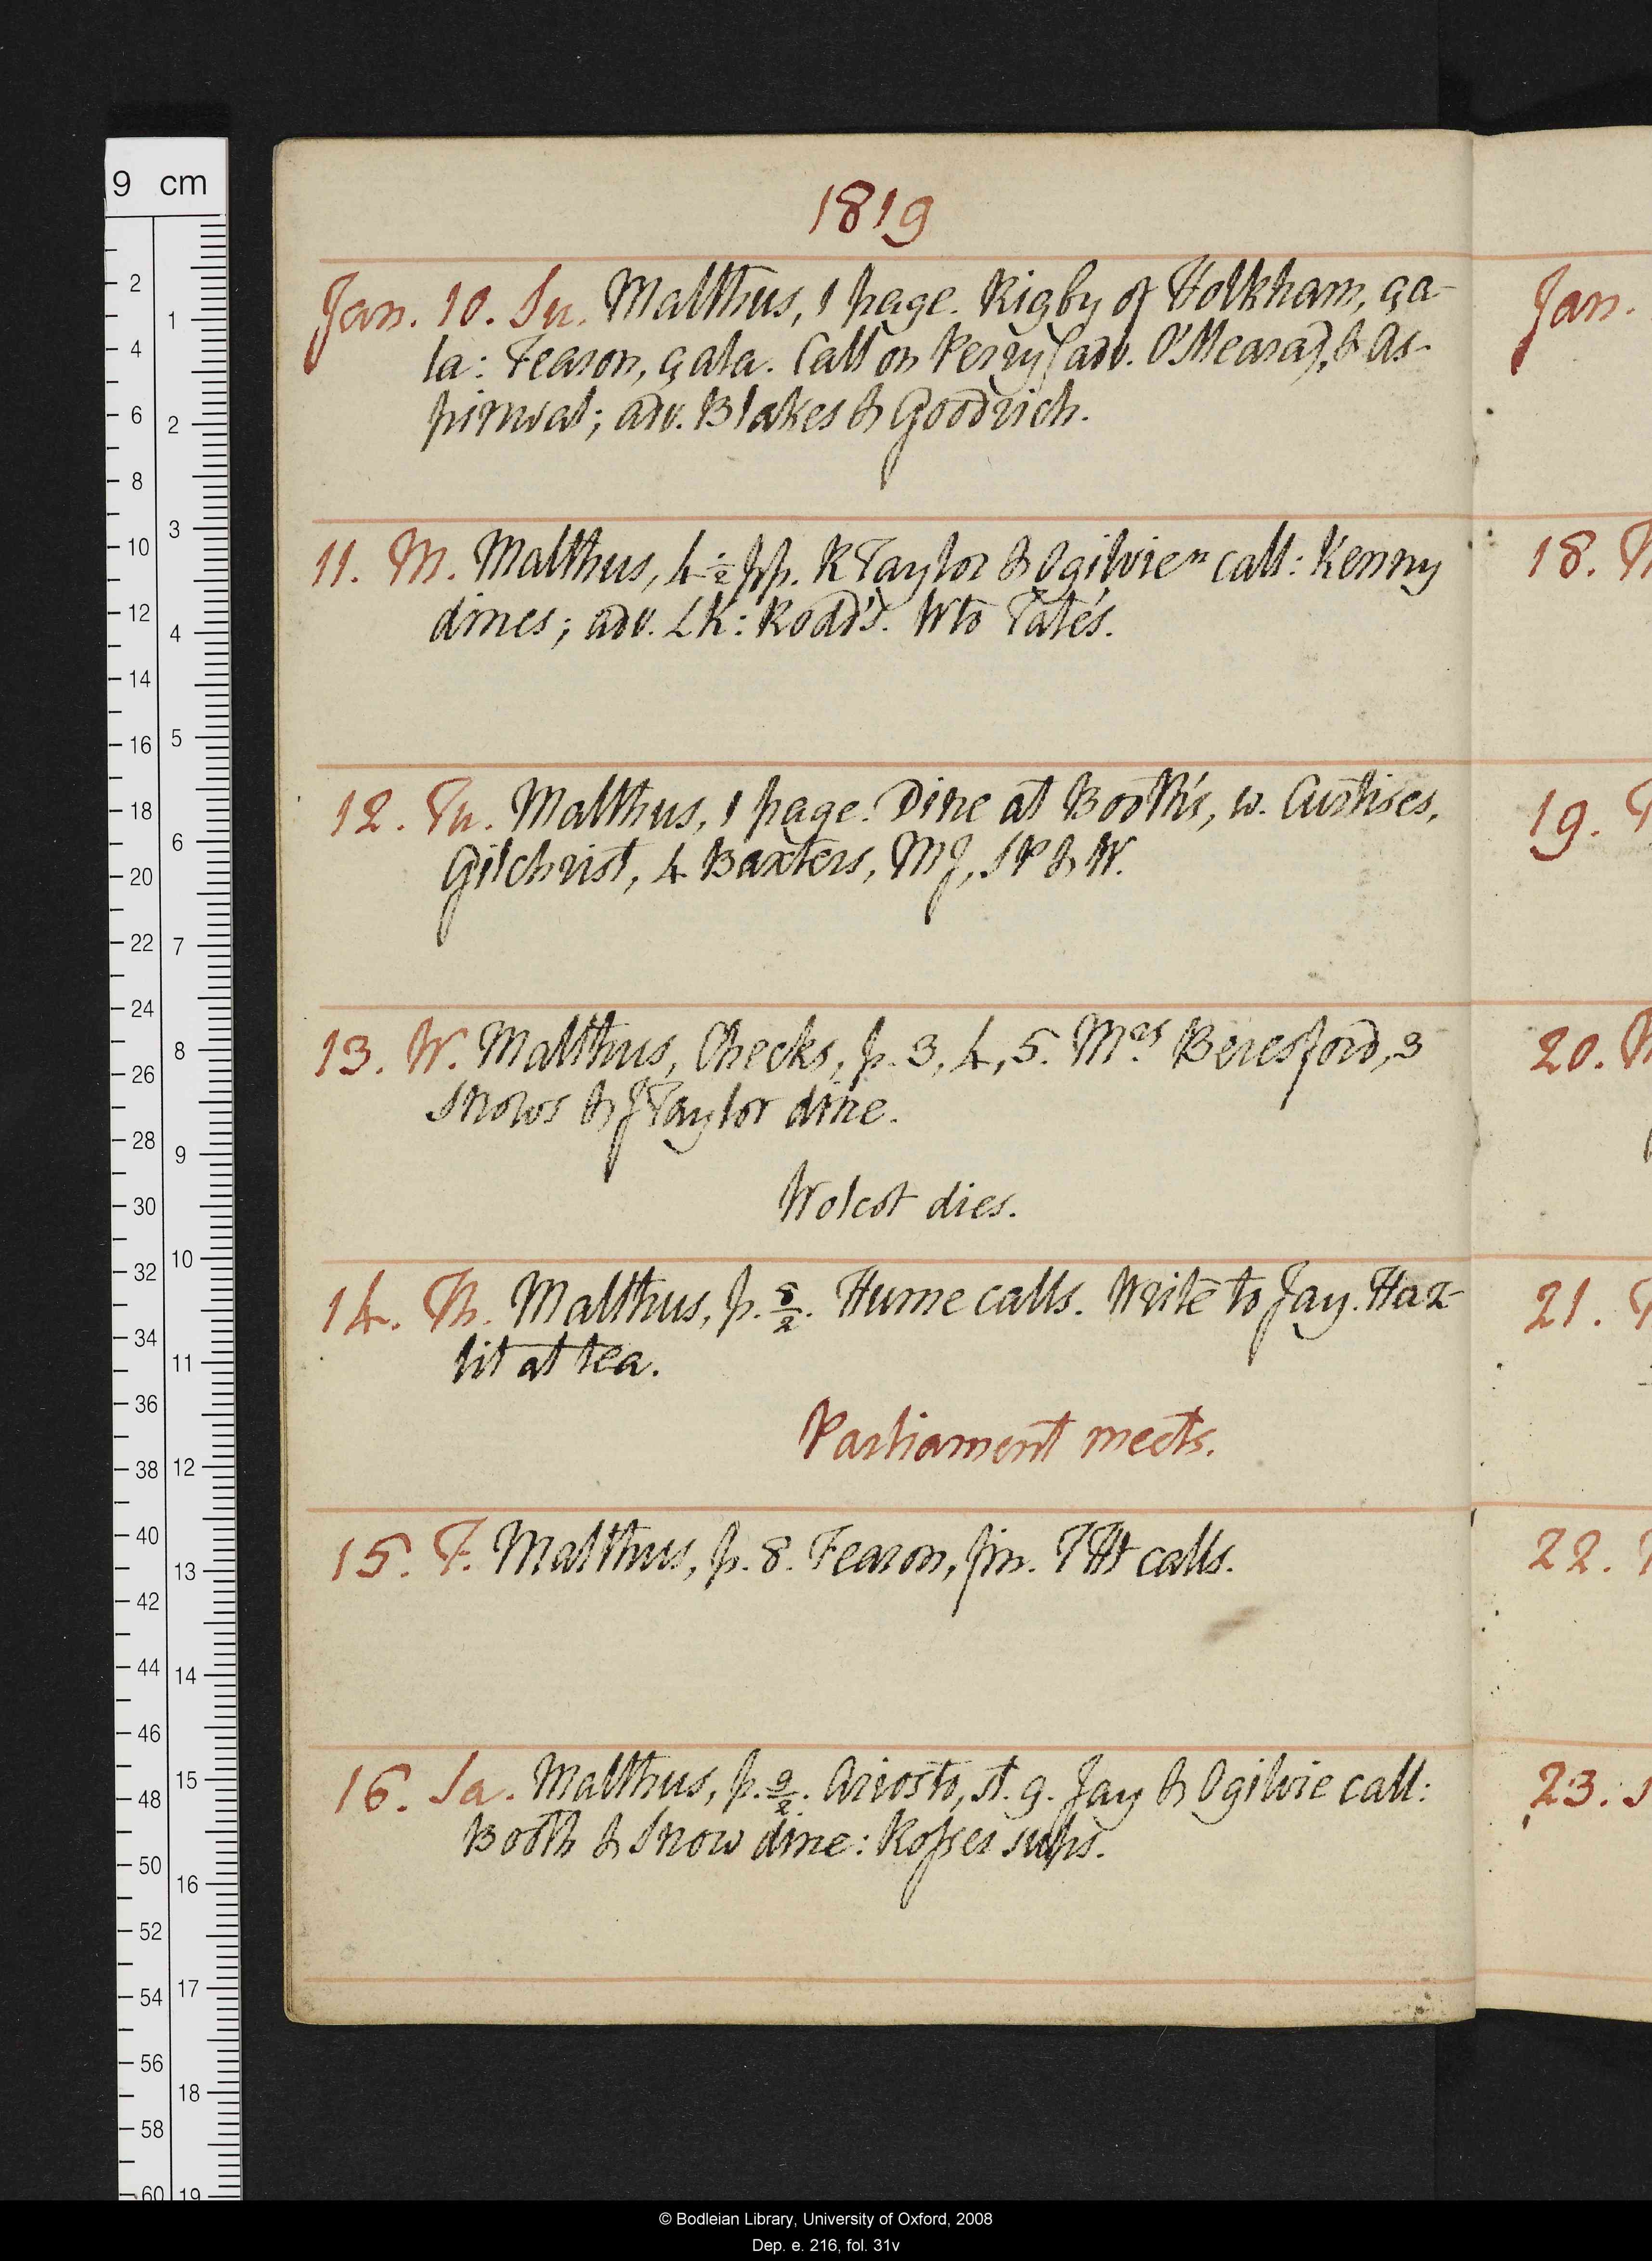 1819
Jan. 10. Su. Malthus, 1 page. Rigby of Holkham, ça-
la: Fearon, çala. Call on Perry (adv. O'Meara), & As-
pirnwal; adv. Blakes & Goodrich.
11. M. Malthus, 4 ½ pp. R Taylor & Ogilvie n call: Kenny
dines; adv. LK: Road's. W to Tate's.
12. Tu. Malthus, 1 page. Dine at Booth's, w. Curtises,
Gilchrist, 4 Baxters, MJ, SP & W.
13. W. Malthus, Checks, p. 3, 4, 5. Mrs Beresford, 3
Snows & J Taylor dine.
Wolcot dies.
14. Th. Malthus, p. 8/2. Hume calls. Write to Jay. Haz-
lit at tea.
Parliament meets.
15. F. Malthus, p. 8. Fearon, fin. TTH calls.
16. Sa. Malthus, p. 9/2. Ariosto, st. 9. Jay & Ogilvie call:
Booth & Snow dine: Rosser sups.
Jan.
18.
19.
20.
21.
22.
23.
9 cm
2
4
6
8
10
12
14
16
18
20
22
24
26
28
30
32
34
36
38
40
42
44
46
48
50
52
54
56
58
60
1
2
3
4
5
6
7
8
9
10
11
12
13
14
15
16
17
18
19
© Bodleian Library, University of Oxford, 2008
Dep. e. 216, fol. 31v